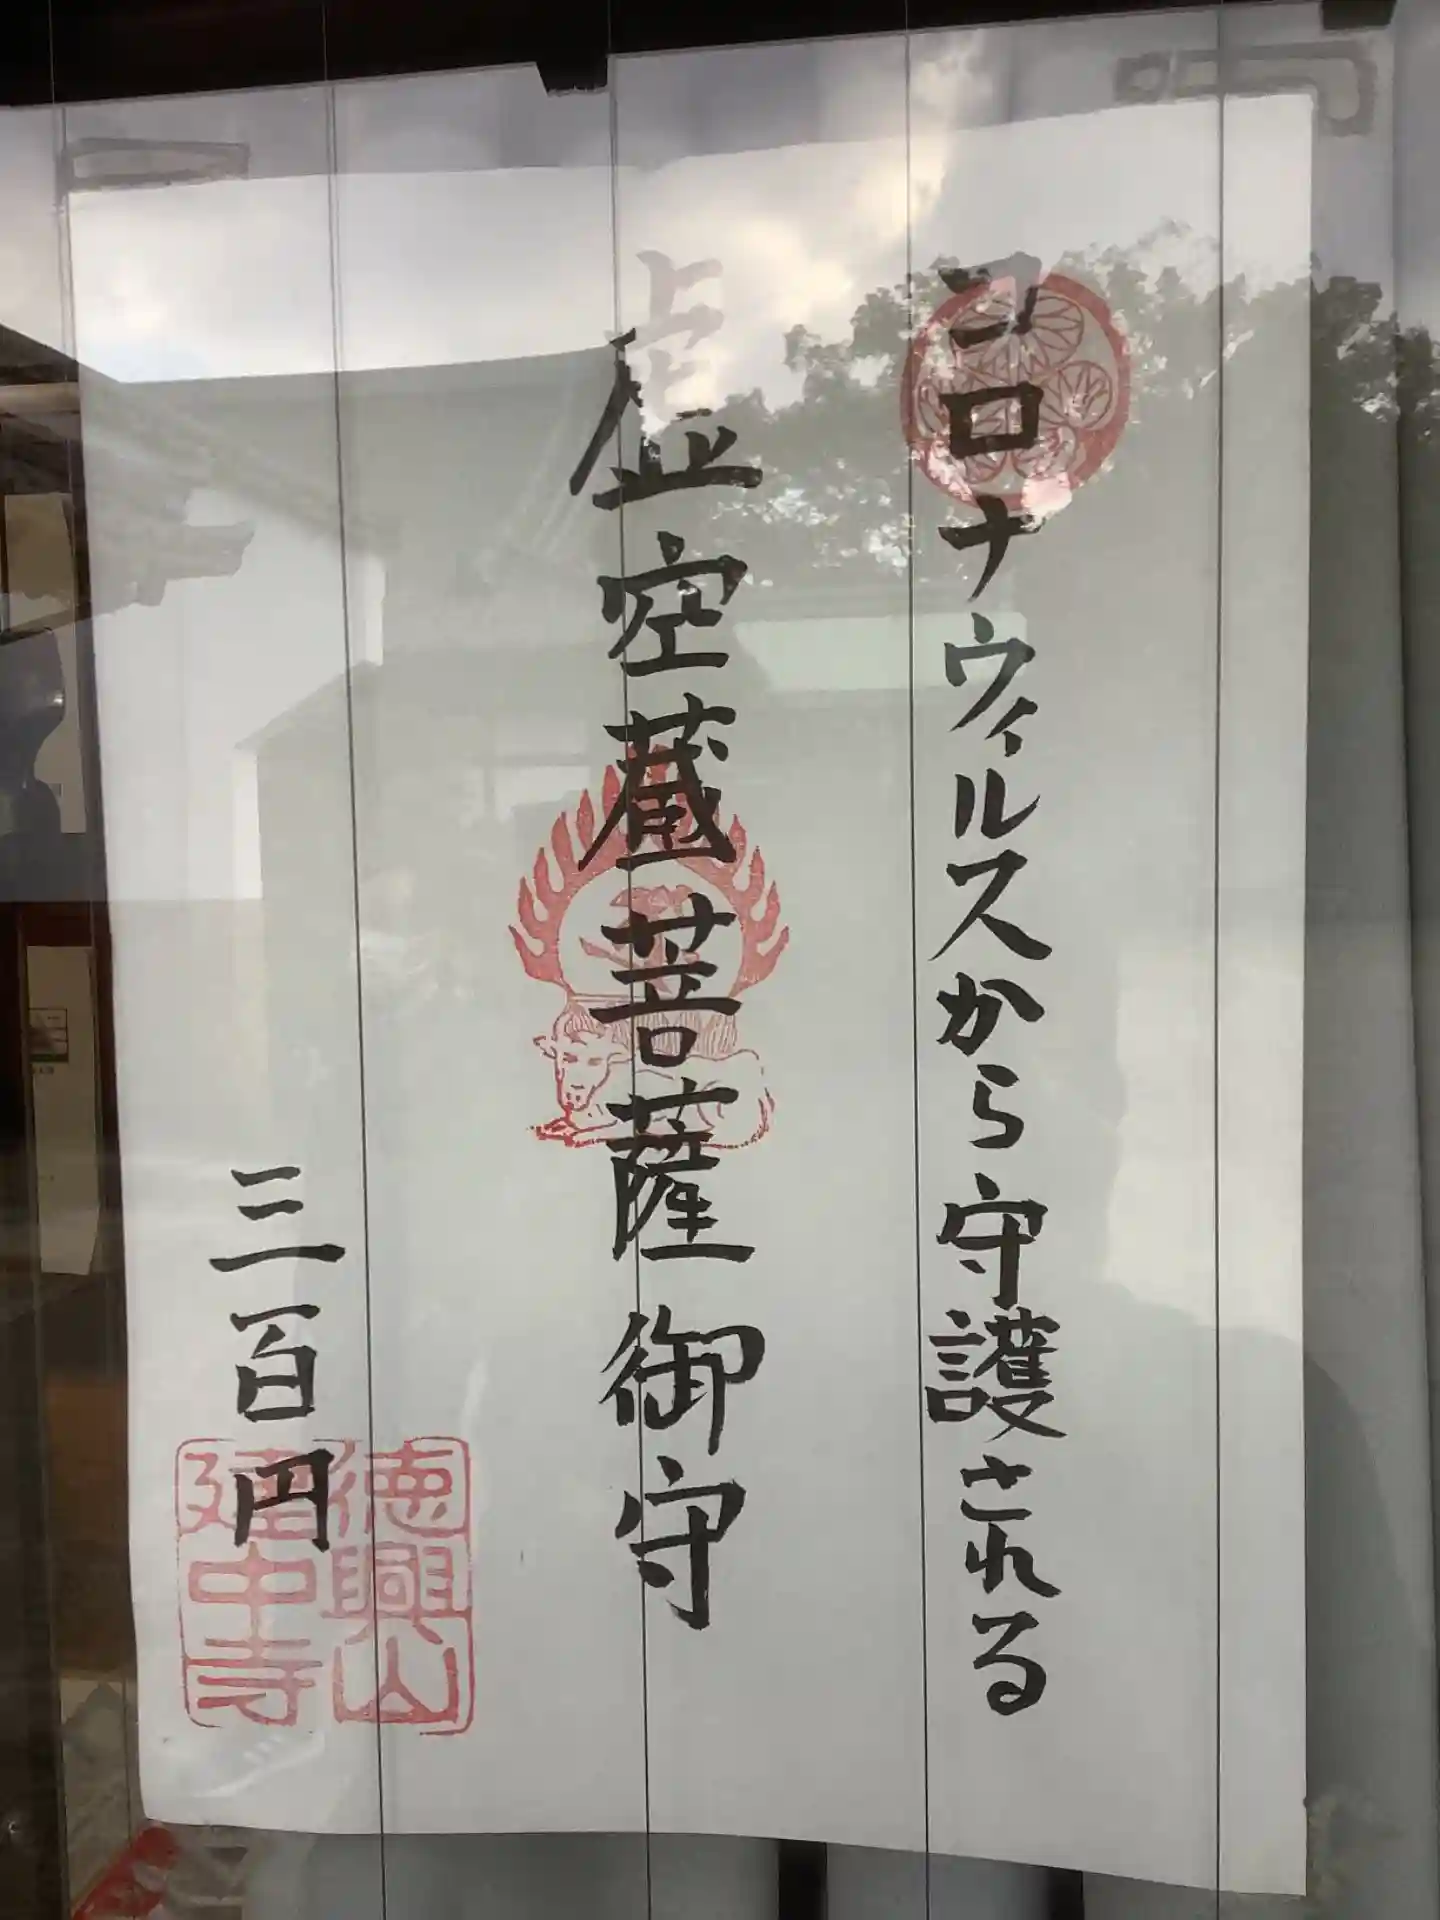 コロナウィルスから守護される
虚空蔵菩薩御守
三百円
徳興山
建中寺